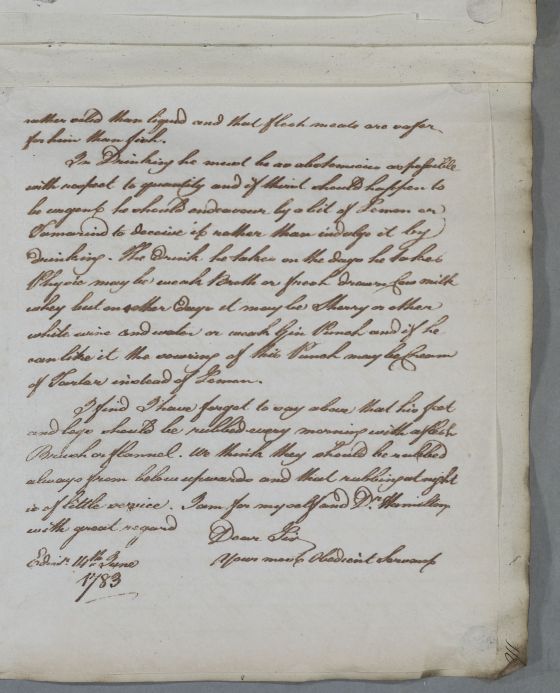 rather solid than liquid and that flesh meats are safer
for him than fish.
In Drinking he must be as abstemious as possible
with respect to quantity and if thirst should happen to
be urgent he should endeavour by a bit of Lemon or
Tamarind to deceive it rather than indulge it by
drinking. The drink he takes on the days he takes
Physic may be weak Broth or fresh drawn Cow milk
whey but on other Days it may be Sherry or other
white wine and water or weak Gin Punch and if he
can like it the souring of his Punch may be Cream
of Tartar instead of Lemon.
I find I have forgot to say above that his feet
and legs should be rubbed every morning with a flesh
Brush or flannel. We think they should be rubbed
always from below upwards and that rubbing at night
is of little service. I am for myself and Dr. Hamilton
with great regard
Dear Sir
Edinr. 14th June Your most Obedient Servant
1783